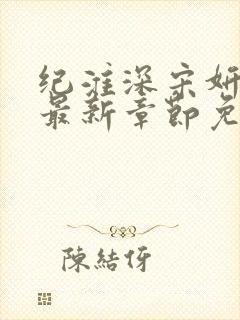 纪淮深宋妍
最新章节免
陳結伢